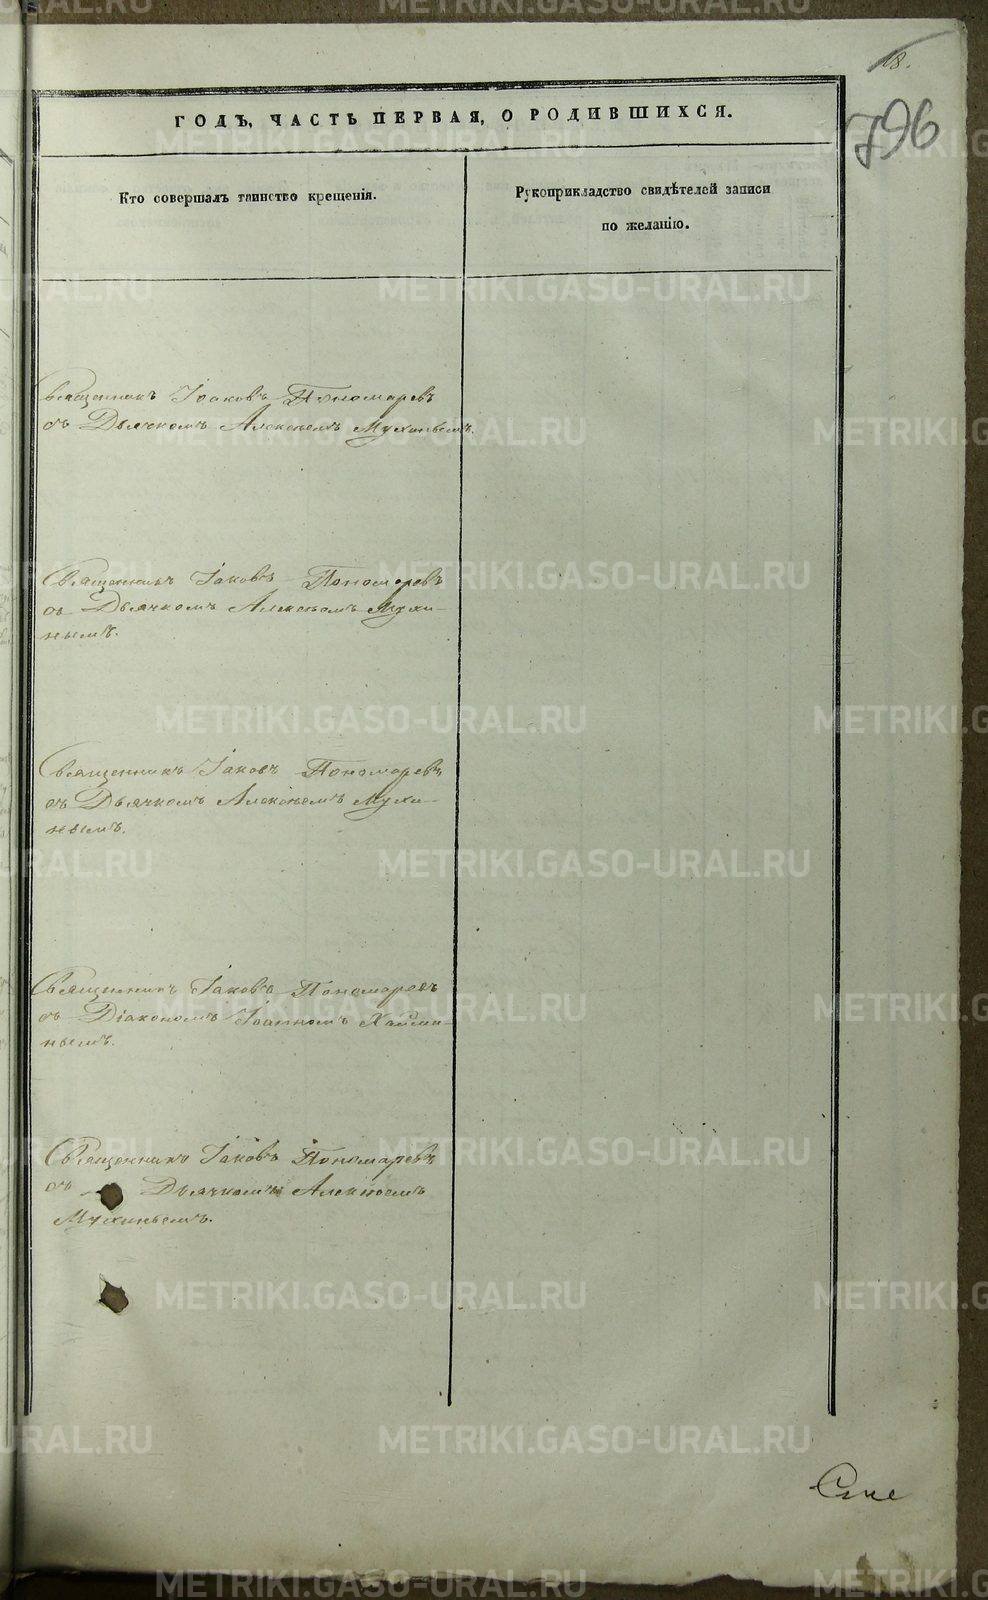 18.
796
ГОДЪ, ЧАСТЬ ПЕРВАЯ, О РОДИВШИХСЯ.
Кто совершалъ таинство крещенія.
Рукоприкладство свидѣтелей записи
по желанію.
Священникъ Іоаковъ Пономаревъ
съ Дьячкомъ Алексѣемъ Мухинымъ.
Священникъ Іаковъ Пономаревъ
съ Дьячкомъ Алексѣемъ Мухи-
нымъ.
Священникъ Іаковъ Пономаревъ
съ Дьячкомъ Алексѣемъ Мухи-
нымъ.
Священникъ Іаковъ Пономаревъ
съ Діакономъ Іоанномъ
нымъ.
Священникъ Іаковъ Пономаревъ
съ Дьячкомъ Алексѣемъ
Мухинымъ.
METRIKI.GASO-URAL.RU